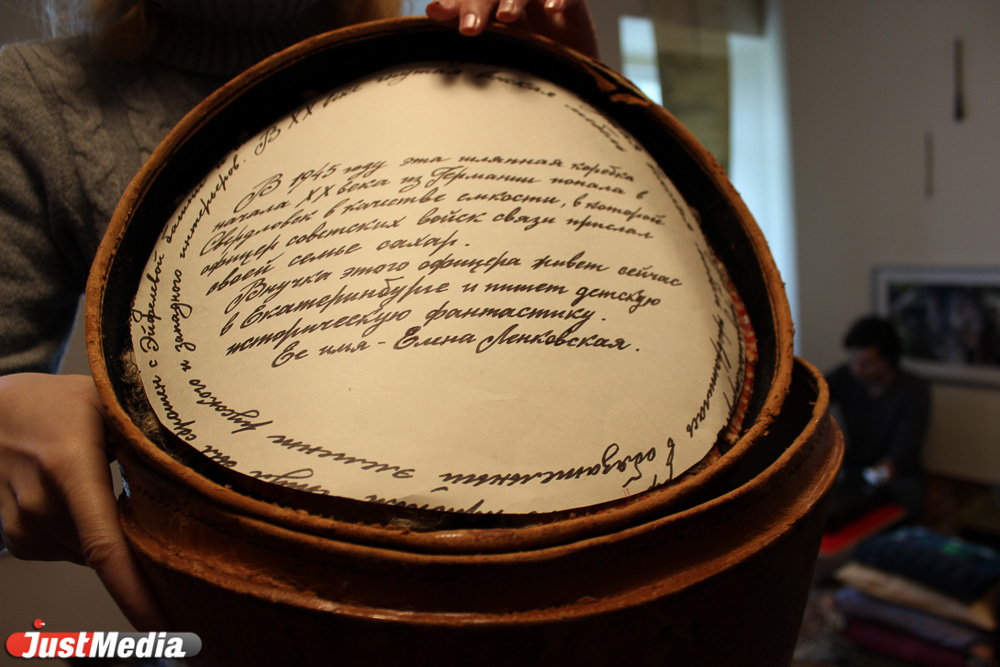 В 1945 году эта шляпная коробка
начала XX века из Германии попала в
Свердловск в качестве емкости, в которой
офицер советских войск связи прислал
своей семье сахар.
Внучка этого офицера живет сейчас
в Екатеринбурге и пишет детскую
историческую фантастику.
Ее имя - Елена Ленковская.
с Эйфелевой башни
и западного интерьеров. В XX веке
в обязательный
элемент
русского
JustMedia